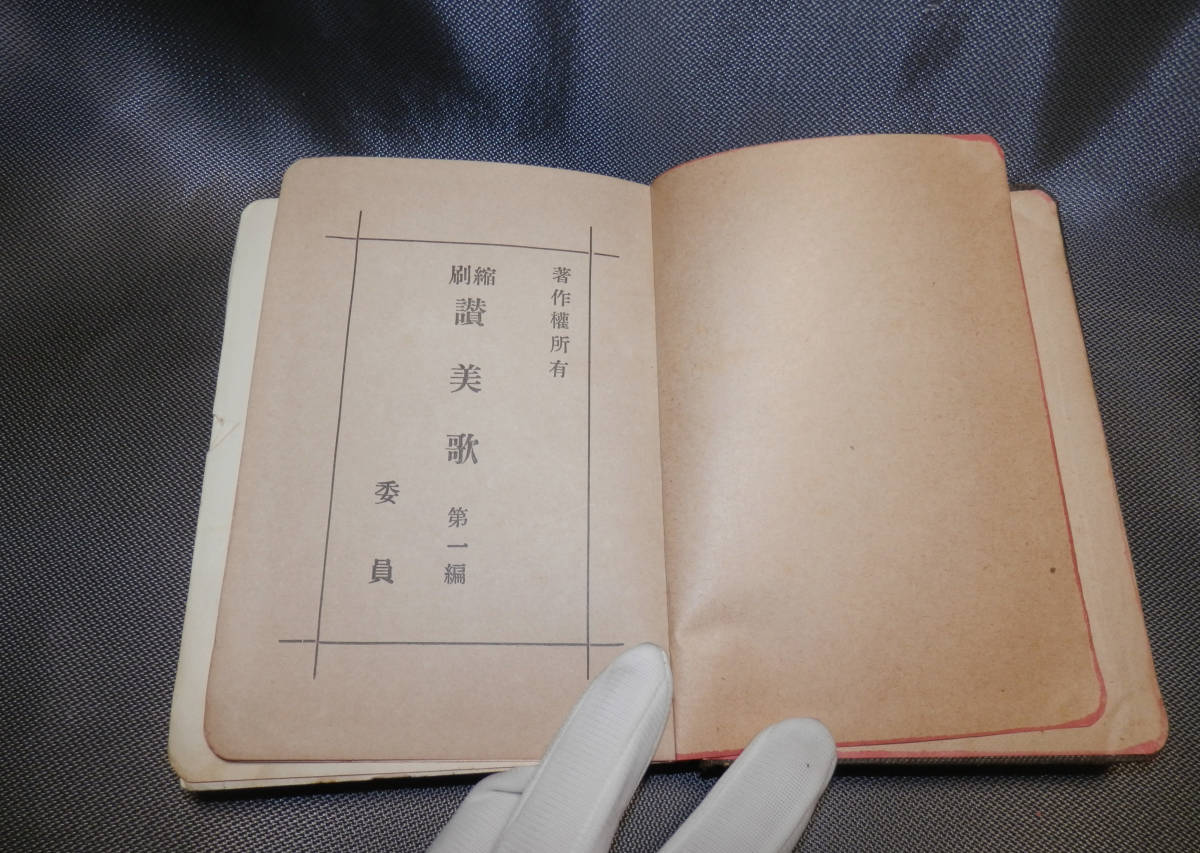 著作權所有
縮刷 讃美歌 第一編
委員